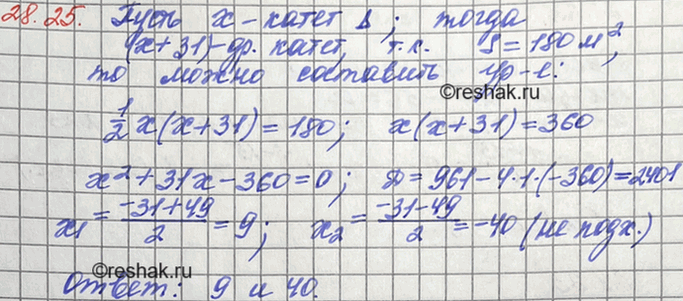 28.25. Пусть x - катет Δ; тогда
(x+31)-др. катет, т.к. S=180м²,
то можно составить ур-е:
©reshak.ru
1/2 x(x+31)=180; x(x+31)=360
x²+31x-360=0; D=961-4·1·(-360)=2401
x₁ = (-31+49)/2 = 9; x₂ = (-31-49)/2 = -40 (не подх.)
©reshak.ru
Ответ: 9 и 40.